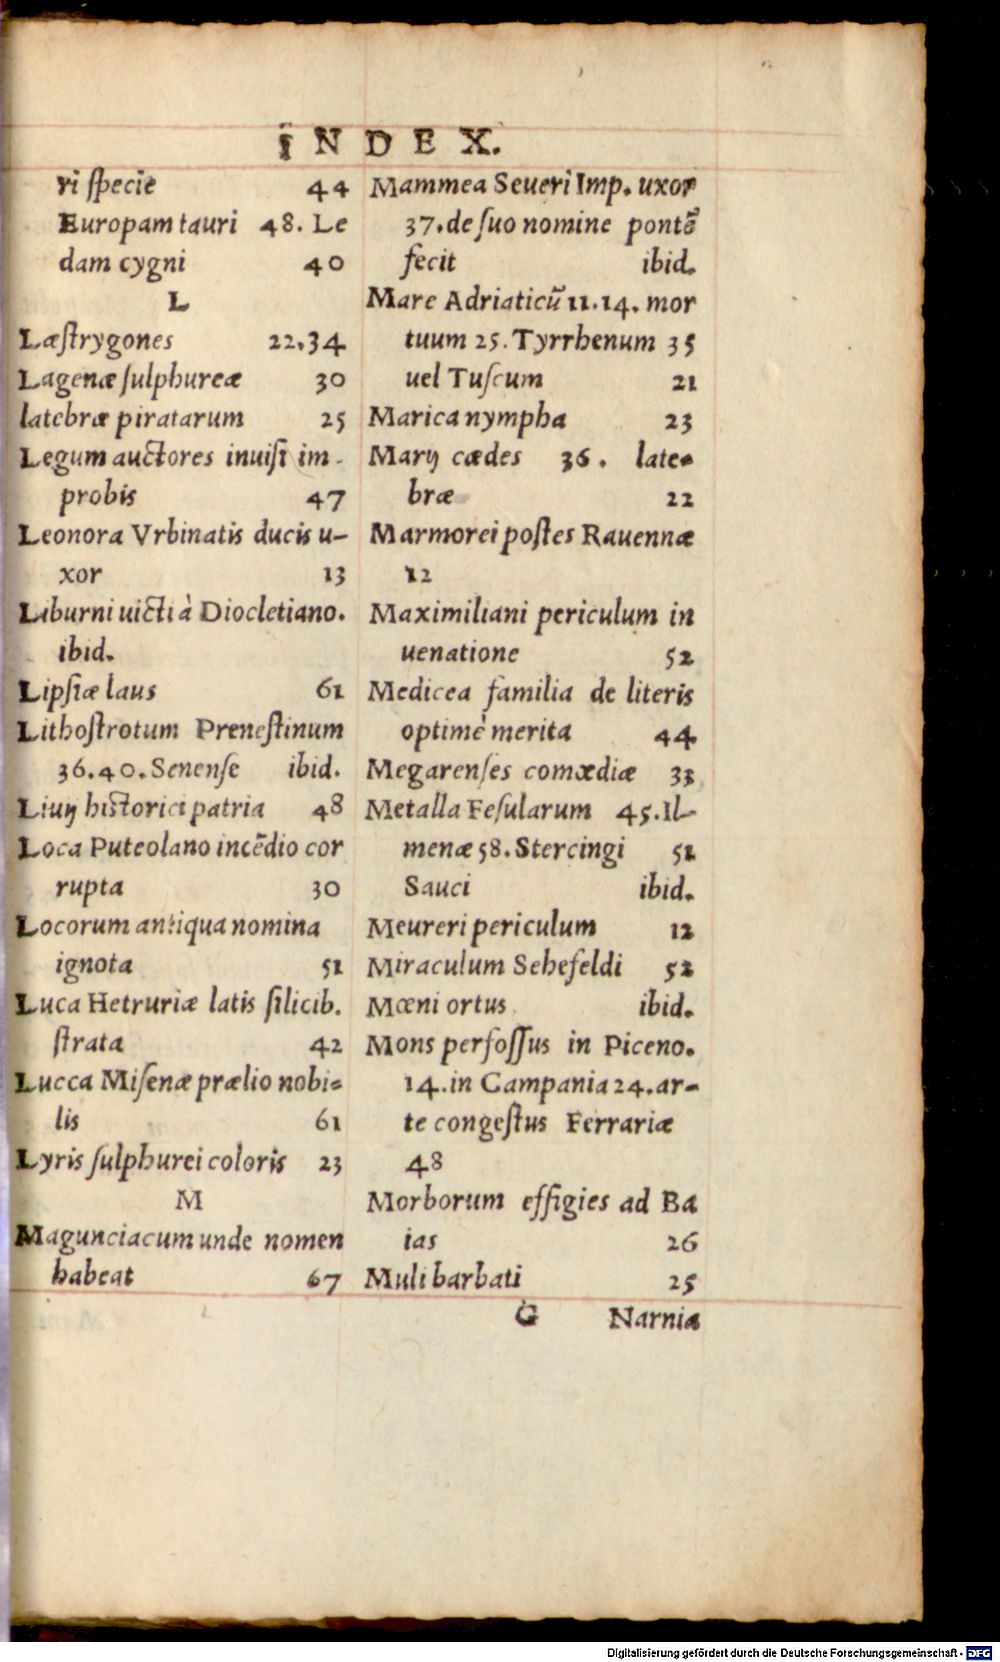 INDEX.
ri specie 44
Europam tauri 48. Le
dam cygni 40
L
Læstrygones 22.34
Lagenæ sulphureæ 30
latebræ piratarum 25
Legum auctores inuisi im-
probis 47
Leonora Vrbinatis ducis u-
xor 13
Liburni uicti à Diocletiano.
ibid.
Lipsiæ laus 61
Lithostrotum Prenestinum
36.40. Senense ibid.
Liuij historici patria 48
Loca Puteolano incẽdio cor
rupta 30
Locorum antiqua nomina
ignota 51
Luca Hetruriæ latis silicib.
strata 42
Lucca Misenæ prælio nobi-
lis 61
Lyris sulphurei coloris 23
M
Magunciacum unde nomen
habeat 67
Mammea Seueri Imp. uxor
37. de suo nomine pontẽ
fecit ibid.
Mare Adriaticũ 11.14. mor
tuum 25. Tyrrhenum 35
uel Tuscum 21
Marica nympha 23
Marij cædes 36. late-
bræ 22
Marmorei postes Rauennæ
12
Maximiliani periculum in
uenatione 52
Medicea familia de literis
optimè merita 44
Megarenses comœdiæ 33
Metalla Fesularum 45. Il-
menæ 58. Stercingi 51
Sauci ibid.
Meureri periculum 12
Miraculum Sehefeldi 52
Mœni ortus ibid.
Mons perfossus in Piceno.
14. in Campania 24. ar-
te congestus Ferrariæ
48
Morborum effigies ad Ba
ias 26
Muli barbati 25
G Narnia
Digitalisierung gefördert durch die Deutsche Forschungsgemeinschaft - DFG